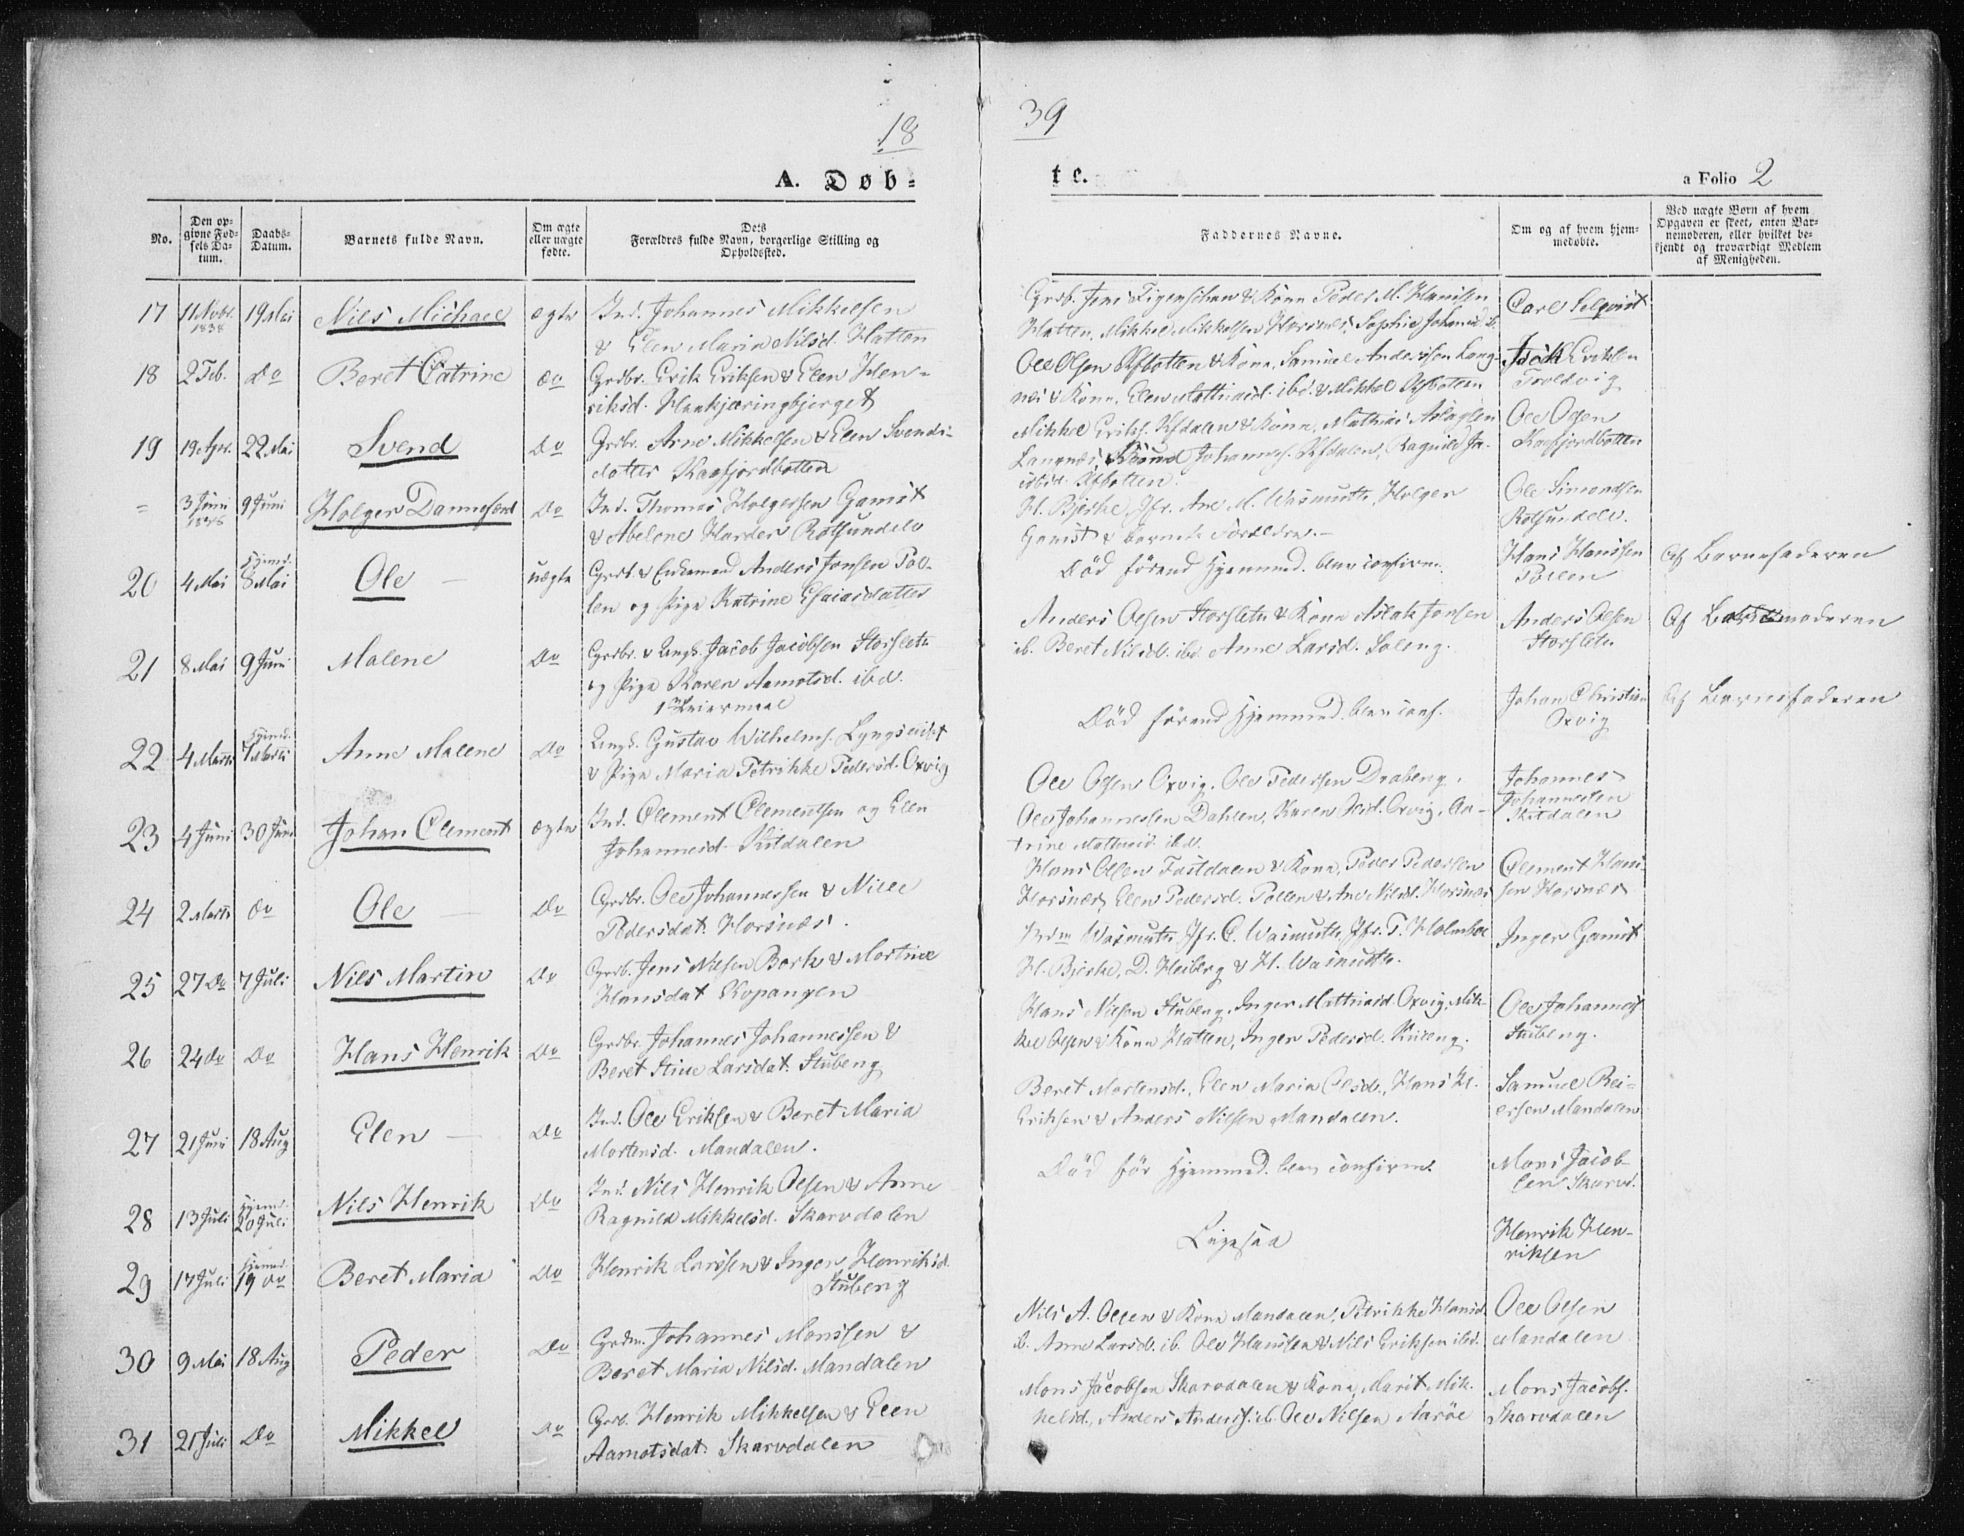 18
39
A. Døb=
te.
a Folio 2
No.
Den op=
givne Fød=
sels Da=
tum.
Daabs=
Datum.
Barnets fulde Navn.
Om ægte
eller uægte
fødte.
Dets
Forældres fulde Navn, borgerlige Stilling og
Opholdssted.
Faddernes Navne.
Om og af hvem hjem=
medøbte.
Ved uægte Børn af hvem
Opgaven er skeet, enten Bar=
nemoderen, eller hvilket be=
kjendt og troværdigt Medlem
af Menigheden.
17 11 Novbr. 1838 19 Mai Nils Michael ægte Ind. Johannes Mikkelsen
& Elen Maria Nilsd. Hatten
Jens & Kone Peder M. Hanssen
Hatten, Mikkel Mikkelsen Horsnæs, Sophie
Carl Selqvist
18 2 Feb. do Beret Catrine do Grdbr. Erik Eriksen & Elen Hen=
riksd. Hankjæringbjerget
Ole Olsen & Kone, Samuel Anderssen Lang=
næs & Kone, Elen ibd. & Mikkel
Isak Eriksen
Troldvig
19 19 Apr. 22 Mai Svend Do Grdbr. Arne Mikkelsen & Elen Svends=
datter Kaafjordbotten
Mikkel Eriks. & Kone, Mathias Aslaksen
Langnæs, Johannes. Ragnild Ja=
Ole Olsen
Kaafjordbotten
= 3 Juni 1838 9 Juni Holger Do Ind. Thomas Holgersen Gamst
& Abelone Harder Rotsundelv
H. Bjerke, Jfr. Ane M. Wasmuth, Holger
Gamst & barnets Forældre.—
Ole Simonsen
Rotsundelv.
20 4 Mai Hjemd. 8 Mai Ole — uægte Grdb. & Enkemand Anders Jonsen Pol=
len og Pige Katrine Esaiasdatter
Død førend Hjemmed. blev confirm.
Hans Hanssen
Pollen
Af Barnefaderen
21 8 Mai 9 Juni Malene Do Grdbr. & Ungk. Jacob Jacobsen Storslett
og Pige Karen Aamotsd. ibd.
1ste Leiermaal
Anders Olsen Storslett & Kone Aslak Jonsen
ib. Beret Nilsd. ibd. Anne Larsd. Soleng.
Anders Olsen
Storslett
Af Barnemoderen
22 4 Marts Hjemd. 7 Marts Anne Malene Do Ungk. Gustav Wilhelms. Lyngseidet
& Pige Maria Petrikke Pedersd. Oxvig
Død førend Hjemmed. blev conf.
Johan Christian
Oxvig
Af Barnefaderen
23 4 Juni 30 Juni Johan Clement ægte Ind. Clement Clementsen og Elen
Johannesd. Kitdalen
Ole Olsen Oxvig, Ole Pederssen Drabeng.
Ole Johannessen Dahlen, Karen Olsd. Oxvig, Ca=
trine Mathisd. ibd.
Johannes
Johannessen
Kitdalen
24 2 Marts do Ole — Do Grdbr. Ole Johannessen & Nille
Pedersdat. Horsnæs.
Hans Olsen & Kone, Peder Pedersen
Horsnæs, Elen Pedersd. Pollen & Ane Nilsd. Horsnæs
Clement Hans=
sen Horsnæs
25 27 Do 7 Juli Nils Martin Do Grdb. Jens Nilsen Bork & Martine
Hansdat Kopangen
Wasmuth, Jfr. C. Wasmuth, Jfr. T. Holmboe
H. Bjerke, D. Heiberg & H. Wasmuth.
Inger Gamst
26 24 do Do Hans Henrik Do Grdbr. Johannes Johannessen &
Beret Stine Larsdat. Stubeng
Hans Nilsen Stubeng, Inger Mathisd. Oxvig, Mik=
kel Olsen & Kone Hatten, Inger Pedersd.
Ole Johannes.
Stubeng.
27 21 Juni 18 Aug Elen — Do Ind. Ole Eriksen & Beret Maria
Mortensd. Mandalen.
Beret Mortensd., Elen Maria Olsd., Hans H.
Eriksen & Anders Nilsen Mandalen.
Samuel Rei=
ersen Mandalen
28 13 Juli Hjemd. 20 Juli Nils Henrik Do Ind. Nils Henrik Olsen & Anne
Ragnild Mikkelsd. Skarvdalen
Død før Hjemmed. blev confirm.
Mons Jacob=
sen Skarvd.
29 17 Juli Hjemd. 19 do Beret Maria Do Henrik Larssen & Inger Henriksd.
Stubeng
Ligesaa
Henrik Hen=
riksen
30 9 Mai 18 Aug Peder Do Grdm. Johannes Monssen &
Beret Maria Nilsd. Mandalen
Nils A. Olsen & Kone Mandalen, Petrikke Hansd.
ib. Anne Larsd. ib. Ole Hanssen & Nils Eriksen ibd.
Ole Olsen
Mandalen
31 21 Juli Do Mikkel Do Grdb. Henrik Mikkelsen & Elen
Aamotsdat. Skarvdalen
Mons Jacobsen Skarvdalen & Kone, Marit Mik=
kelsd., Anders Anderss. ib. Ole Nilsen Aarøe
Mons Jacobs.
Skarvdalen